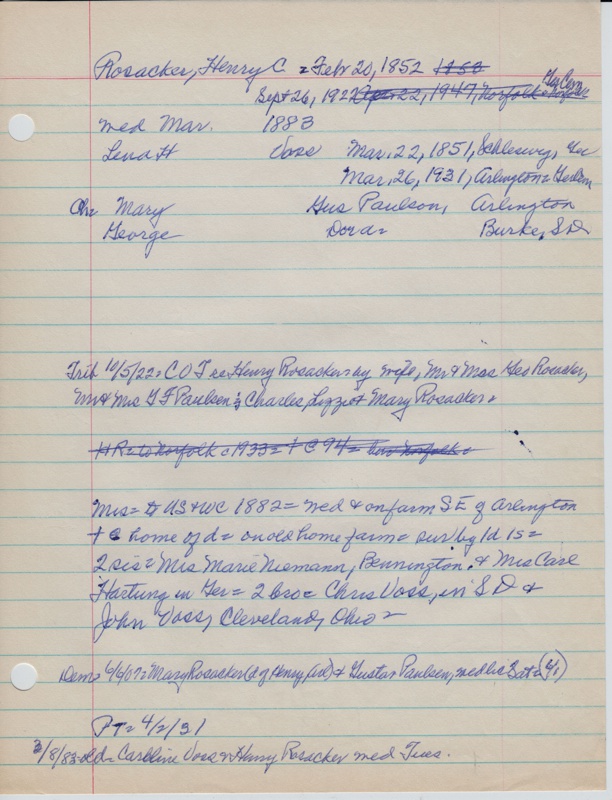 Rosacker, Henry C. = Feb 20, 1852 1858
Sept 26, 1922 Apr. 22, 1947, Norfolk = Norfolk Ger Cem
med Mar. 1883
Lena H Voss Mar. 22, 1851, Schleswig, Ger
Mar. 26, 1931, Arlington =
Ch = Mary Gus Paulson, Arlington
George Dora = Burke, S D
Trib 10/5/22 = C O T = Henry Rosackers by wife, Mr & Mrs Geo Rosacker,
Mr & Mrs G F Paulsen & Charles, Lizzie & Mary Rosacker =
H R = to Norfolk c 1933 = + @ 94 = Norfolk =
Mrs = to US & WC 1882 = med & on farm S E of Arlington
+ @ home of d = on old home farm = sur by 1d 1s =
2 sis = Mrs Marie Niemann, Bennington & Mrs Carl
Hartung in Ger = 2 bro = Chris Voss, in S D &
John Voss, Cleveland, Ohio =
Dem = 4/6/07 = Mary Rosacker (d of Henry Arl) & Gustav Paulsen, med lic Sat =
PT = 4/2/31
3/8/83 = Caroline Voss & Harry Rosacker med Tues.